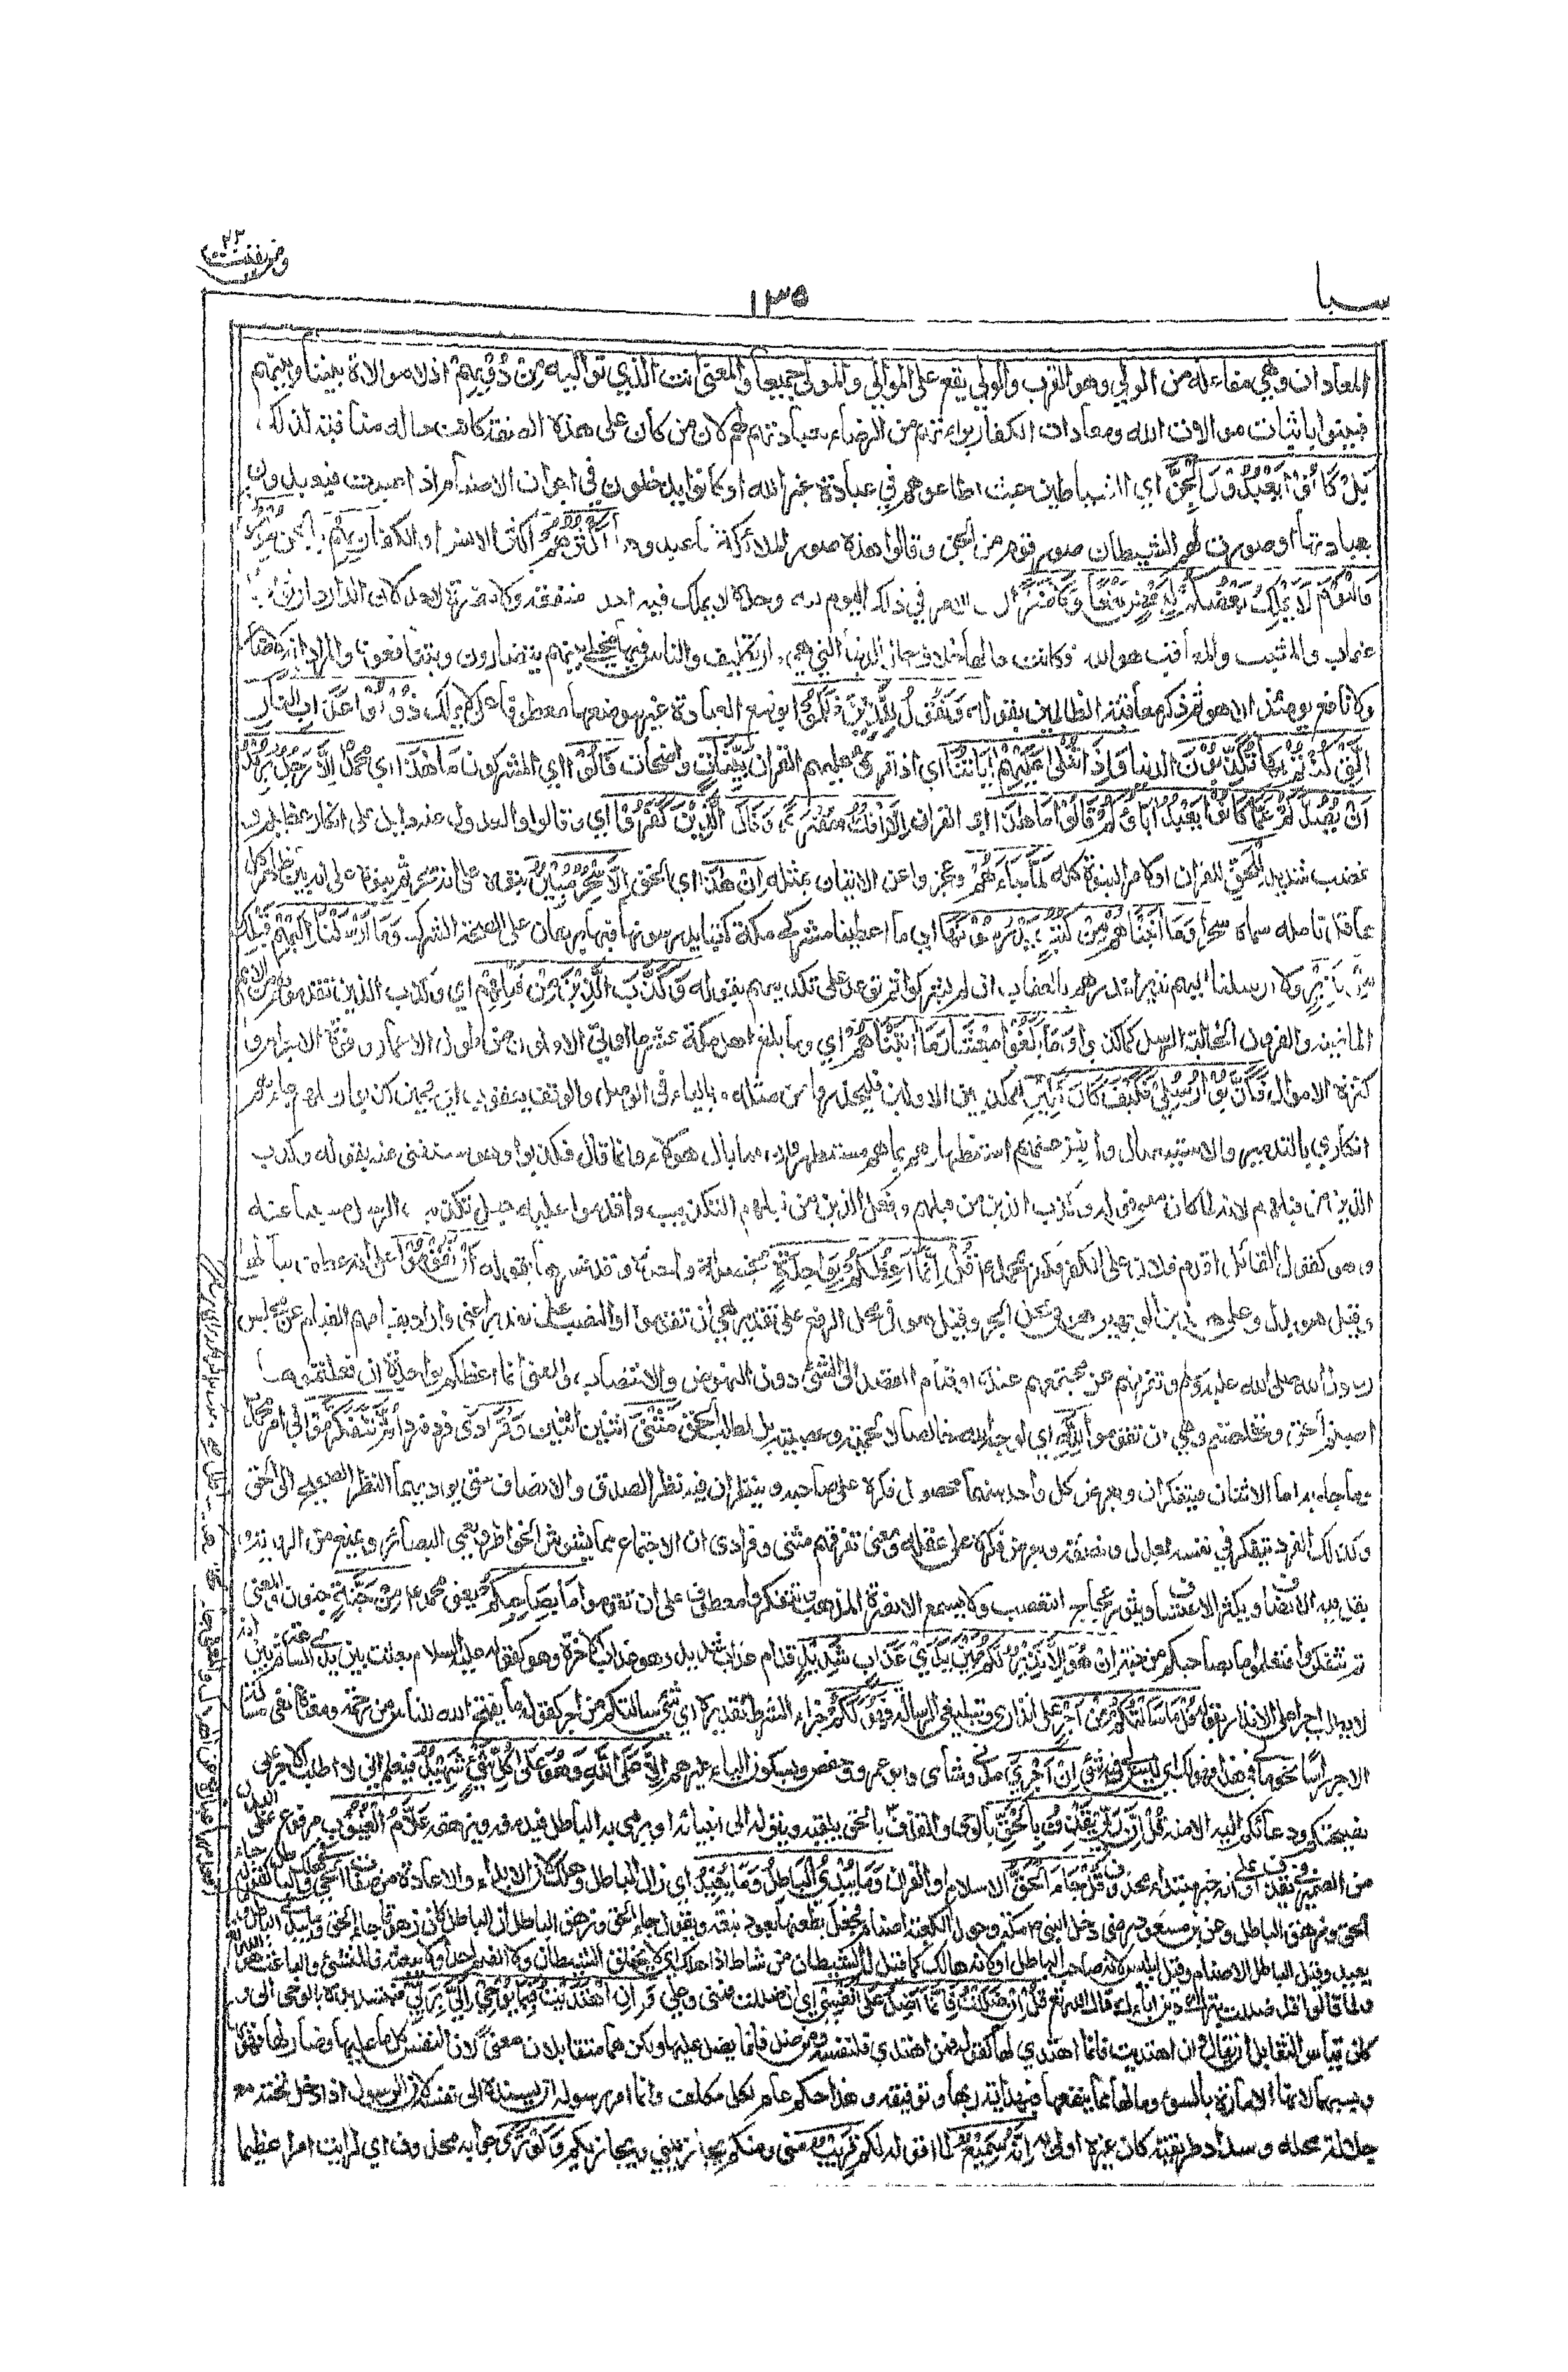 ومن يقنت ٢٢
سبا
١٣٥
المعادات وهي مفاعلة من الولي وهو القرب والولي يقع على الموالي والمولى جميعا والمعنى انت الذي تواليه مِنْ دُوْنِهِمْ اذ لا موالاة بيننا وبينهم
فبينوا باثبات موالات الله ومعادات الكفار براءتهم من الرضاء بعبادتهم لهم لان من كان على هذه الصفة كانت حاله منافية لذلك
بَلْ كَانُوْا يَعْبُدُوْنَ الْجِنَّ اي الشياطين حيث اطاعوهم في عبادة غير الله او كانوا يدخلون في اجواف الاصنام اذا عبدت فيعبدون
بعبادتها او صورت لهم الشيطان صور قوم من الجن وقالوا هذه صور الملائكة فاعبدوها اَكْثَرُهُمْ اكثر الانس او الكفار بِهِمْ بالجن مُّؤْمِنُوْنَ
فَالْيَوْمَ لَا يَمْلِكُ بَعْضُكُمْ لِبَعْضٍ نَّفْعًا وَّلَا ضَرًّا لان الامر في ذلك اليوم لله وحده لا يملك فيه احد منفعة ولا مضرة لاحد لان الدار دار ثواب
وعقاب والمثيب والمعاقب هو الله وكانت حالها خلاف حال الدنيا التي هي دار تكليف والناس فيها مخلى بينهم يتضارون ويتنافعون والمراد انه لا ضار
ولا نافع يومئذ الا هو ثم ذكر معاقبة الظالمين بقوله وَنَقُوْلُ لِلَّذِيْنَ ظَلَمُوْا بوضع العبادة غير موضعها معطوف على لا يملك ذُوْقُوْا عَذَابَ النَّارِ
الَّتِيْ كُنْتُمْ بِهَا تُكَذِّبُوْنَ في الدنيا وَاِذَا تُتْلٰى عَلَيْهِمْ اٰيَاتُنَا اي اذا قرئ عليهم القران بَيِّنَاتٍ واضحات قَالُوْا اي المشركون مَا هٰذَا اي محمد اِلَّا رَجُلٌ يُّرِيْدُ
اَنْ يَّصُدَّكُمْ عَمَّا كَانَ يَعْبُدُ اٰبَاؤُكُمْ وَقَالُوْا مَا هٰذَا اي القران اِلَّا اِفْكٌ مُّفْتَرًى وَقَالَ الَّذِيْنَ كَفَرُوْا اي وقالوا والعدول عنه دليل على انكار عظيم و
غضب شديد لِلْحَقِّ للقران او لامر النبوة كله لَمَّا جَاءَهُمْ وعجزوا عن الاتيان بمثله اِنْ هٰذَا اي الحق اِلَّا سِحْرٌ مُّبِيْنٌ بتوه على انه سحر ثم بتوه على انه بين ظاهر كل
عاقل تامله سماه سحرا وَمَا اٰتَيْنَاهُمْ مِّنْ كُتُبٍ يَّدْرُسُوْنَهَا اي ما اعطينا مشركي مكة كتبا يدرسونها فيها برهان على صحة الشرك وَمَا اَرْسَلْنَا اِلَيْهِمْ قَبْلَكَ
مِنْ نَّذِيْرٍ ولا ارسلنا اليهم نذيرا ينذرهم بالعقاب ان لم يشركوا ثم توعدهم على تكذيبهم بقوله وَكَذَّبَ الَّذِيْنَ مِنْ قَبْلِهِمْ اي وكذب الذين تقدموهم من الامم
الماضية والقرون الخالية الرسل كما كذبوا وَمَا بَلَغُوْا مِعْشَارَ مَا اٰتَيْنَاهُمْ اي وما بلغ اهل مكة عشر ما اوتي الاولون من طول الاعمار وقوة الاجرام و
كثرة الاموال فَكَذَّبُوْا رُسُلِيْ فَكَيْفَ كَانَ نَكِيْرِ
انكاري بالتدمير والاستيصال ولم يغن عنهم استظهارهم بما هم مستظهرون فما بال هؤلاء وانما قال فكذبوا وهو مستغنى عنه بقوله وكذب
الذين من قبلهم لانه لما كان معنى قوله وكذب الذين من قبلهم وفعل الذين من قبلهم التكذيب واقدموا عليه جعل تكذيب الرسل مسببا عنه
وهو كقول القائل اقدم فلان على الكفر فكفر بمحمد عم قُلْ اِنَّمَا اَعِظُكُمْ بِوَاحِدَةٍ بخصلة واحدة وقد فسرها بقوله اَنْ تَقُوْمُوْا على انه عطف بيان لها
وقيل هو بدل وعلى هذين الوجهين هو في محل الجر وقيل هو في محل الرفع على تقدير هي ان تقوموا او النصب على تقدير اعني واراد بقيامهم القيام عن مجلس
رسول الله صلى الله عليه وسلم وتفرقهم عن مجتمعهم عنده او قيام القصد الى الشئ دون النهوض والانتصاب والمعنى انما اعظكم بواحدة ان فعلتموها
اصبتم الحق وتخلصتم وهي ان تقوموا لِلّٰهِ اي لوجه الله خالصا لا لحمية وعصبية بل لطلب الحق مَثْنٰى اثنين اثنين وَفُرَادٰى فردا فردا ثُمَّ تَتَفَكَّرُوْا في امر محمد
وما جاء به اما الاثنان فيتفكران ويعرض كل واحد منهما محصول فكره على صاحبه وينظران فيه نظر الصدق والانصاف حتى يؤديهما النظر الصحيح الى الحق
وكذلك الفرد يتفكر في نفسه بعدل ونصفة ويعرض فكره على عقله ومعنى تفرقهم مثنى وفرادى ان الاجتماع مما يشوش الخواطر ويعمي البصائر ويمنع من الروية و
يقل فيه الانصاف ويكثر الاعتساف ويثور عجاج التعصب ولا يسمع الا نصرة المذهب وتتفكروا معطوف على ان تقوموا مَا بِصَاحِبِكُمْ يعني محمدا عم مِّنْ جِنَّةٍ جنون والمعنى
ثم تتفكروا فتعلموا ما بصاحبكم من جنة اِنْ هُوَ اِلَّا نَذِيْرٌ لَّكُمْ بَيْنَ يَدَيْ عَذَابٍ شَدِيْدٍ قدام عذاب شديد وهو عذاب الاخرة وهو كقوله عليه السلام بعثت بين يدي الساعة ثم بين انه
لا يطلب اجرا على الانذار بقوله قُلْ مَا سَاَلْتُكُمْ مِّنْ اَجْرٍ على انذاري وتبليغي الرسالة فَهُوَ لَكُمْ جزاء الشرط تقديره اي شئ سالتكم من اجر كقوله ما يفتح الله للناس من رحمة ومعناه نفي مسالة
الاجر راسا نحو ما لي في هذا فهو لك اي ليس لي فيه شئ اِنْ اَجْرِيَ مدني وشامي وابو عمرو وحفص وبسكون الياء غيرهم اِلَّا عَلَى اللّٰهِ وَهُوَ عَلٰى كُلِّ شَيْءٍ شَهِيْدٌ فيعلم اني لا اطلب الاجر على
نصيحتكم ودعائكم اليه الا منه قُلْ اِنَّ رَبِّيْ يَقْذِفُ بِالْحَقِّ بالوحي والقذف بالحق يلقيه وينزله الى انبيائه او يرمي به الباطل فيدمغه ويزهقه عَلَّامُ الْغُيُوْبِ مرفوع على البدل
من الضمير في يقذف او انه خبر مبتدأ محذوف قُلْ جَاءَ الْحَقُّ الاسلام او القران وَمَا يُبْدِئُ الْبَاطِلُ وَمَا يُعِيْدُ اي زال الباطل وهلك لان الابداء والاعادة من صفات الحي
الحق وزهق الباطل وعن ابن مسعود رضي دخل النبي عم مكة وحول الكعبة اصنام فجعل يطعنها بعود نبعة ويقول جاء الحق وزهق الباطل ان الباطل كان زهوقا جاء الحق وما يبدئ الباطل وما
يعيد وقيل الباطل الاصنام وقيل ابليس لانه صاحب الباطل او لانه هالك كما قيل له الشيطان من شاط اذا هلك اي لا يخلق الشيطان ولا الصنم احدا ولا يبعثه فالمنشئ والباعث هو
ولما قالوا قد ضللت بترك دين ابائك قال الله تع قُلْ اِنْ ضَلَلْتُ فَاِنَّمَا اَضِلُّ عَلٰى نَفْسِيْ اي ان ضللت فمني وعلي وَاِنِ اهْتَدَيْتُ فَبِمَا يُوْحِيْ اِلَيَّ رَبِّيْ فبتسديده بالوحي الي و
كان قياس التقابل ان يقال وان اهتديت فانما اهتدي لها كقوله فمن اهتدى فلنفسه ومن ضل فانما يضل عليها ولكن هما متقابلان معنى لان النفس كل ما عليها وضار لها فهو
بها وبسببها لانها الامارة بالسوء وما لها مما ينفعها فبهداية ربها وتوفيقه وهذا حكم عام لكل مكلف وانما امر رسوله ان يسنده الى نفسه لان الرسول اذا دخل تحته مع
جلالة محله وسداد طريقته كان غيره اولى به اِنَّهٗ سَمِيْعٌ لما اقوله لكم قَرِيْبٌ مني ومنكم يجازيني ويجازيكم وَلَوْ تَرٰى جوابه محذوف اي لرايت امرا عظيما